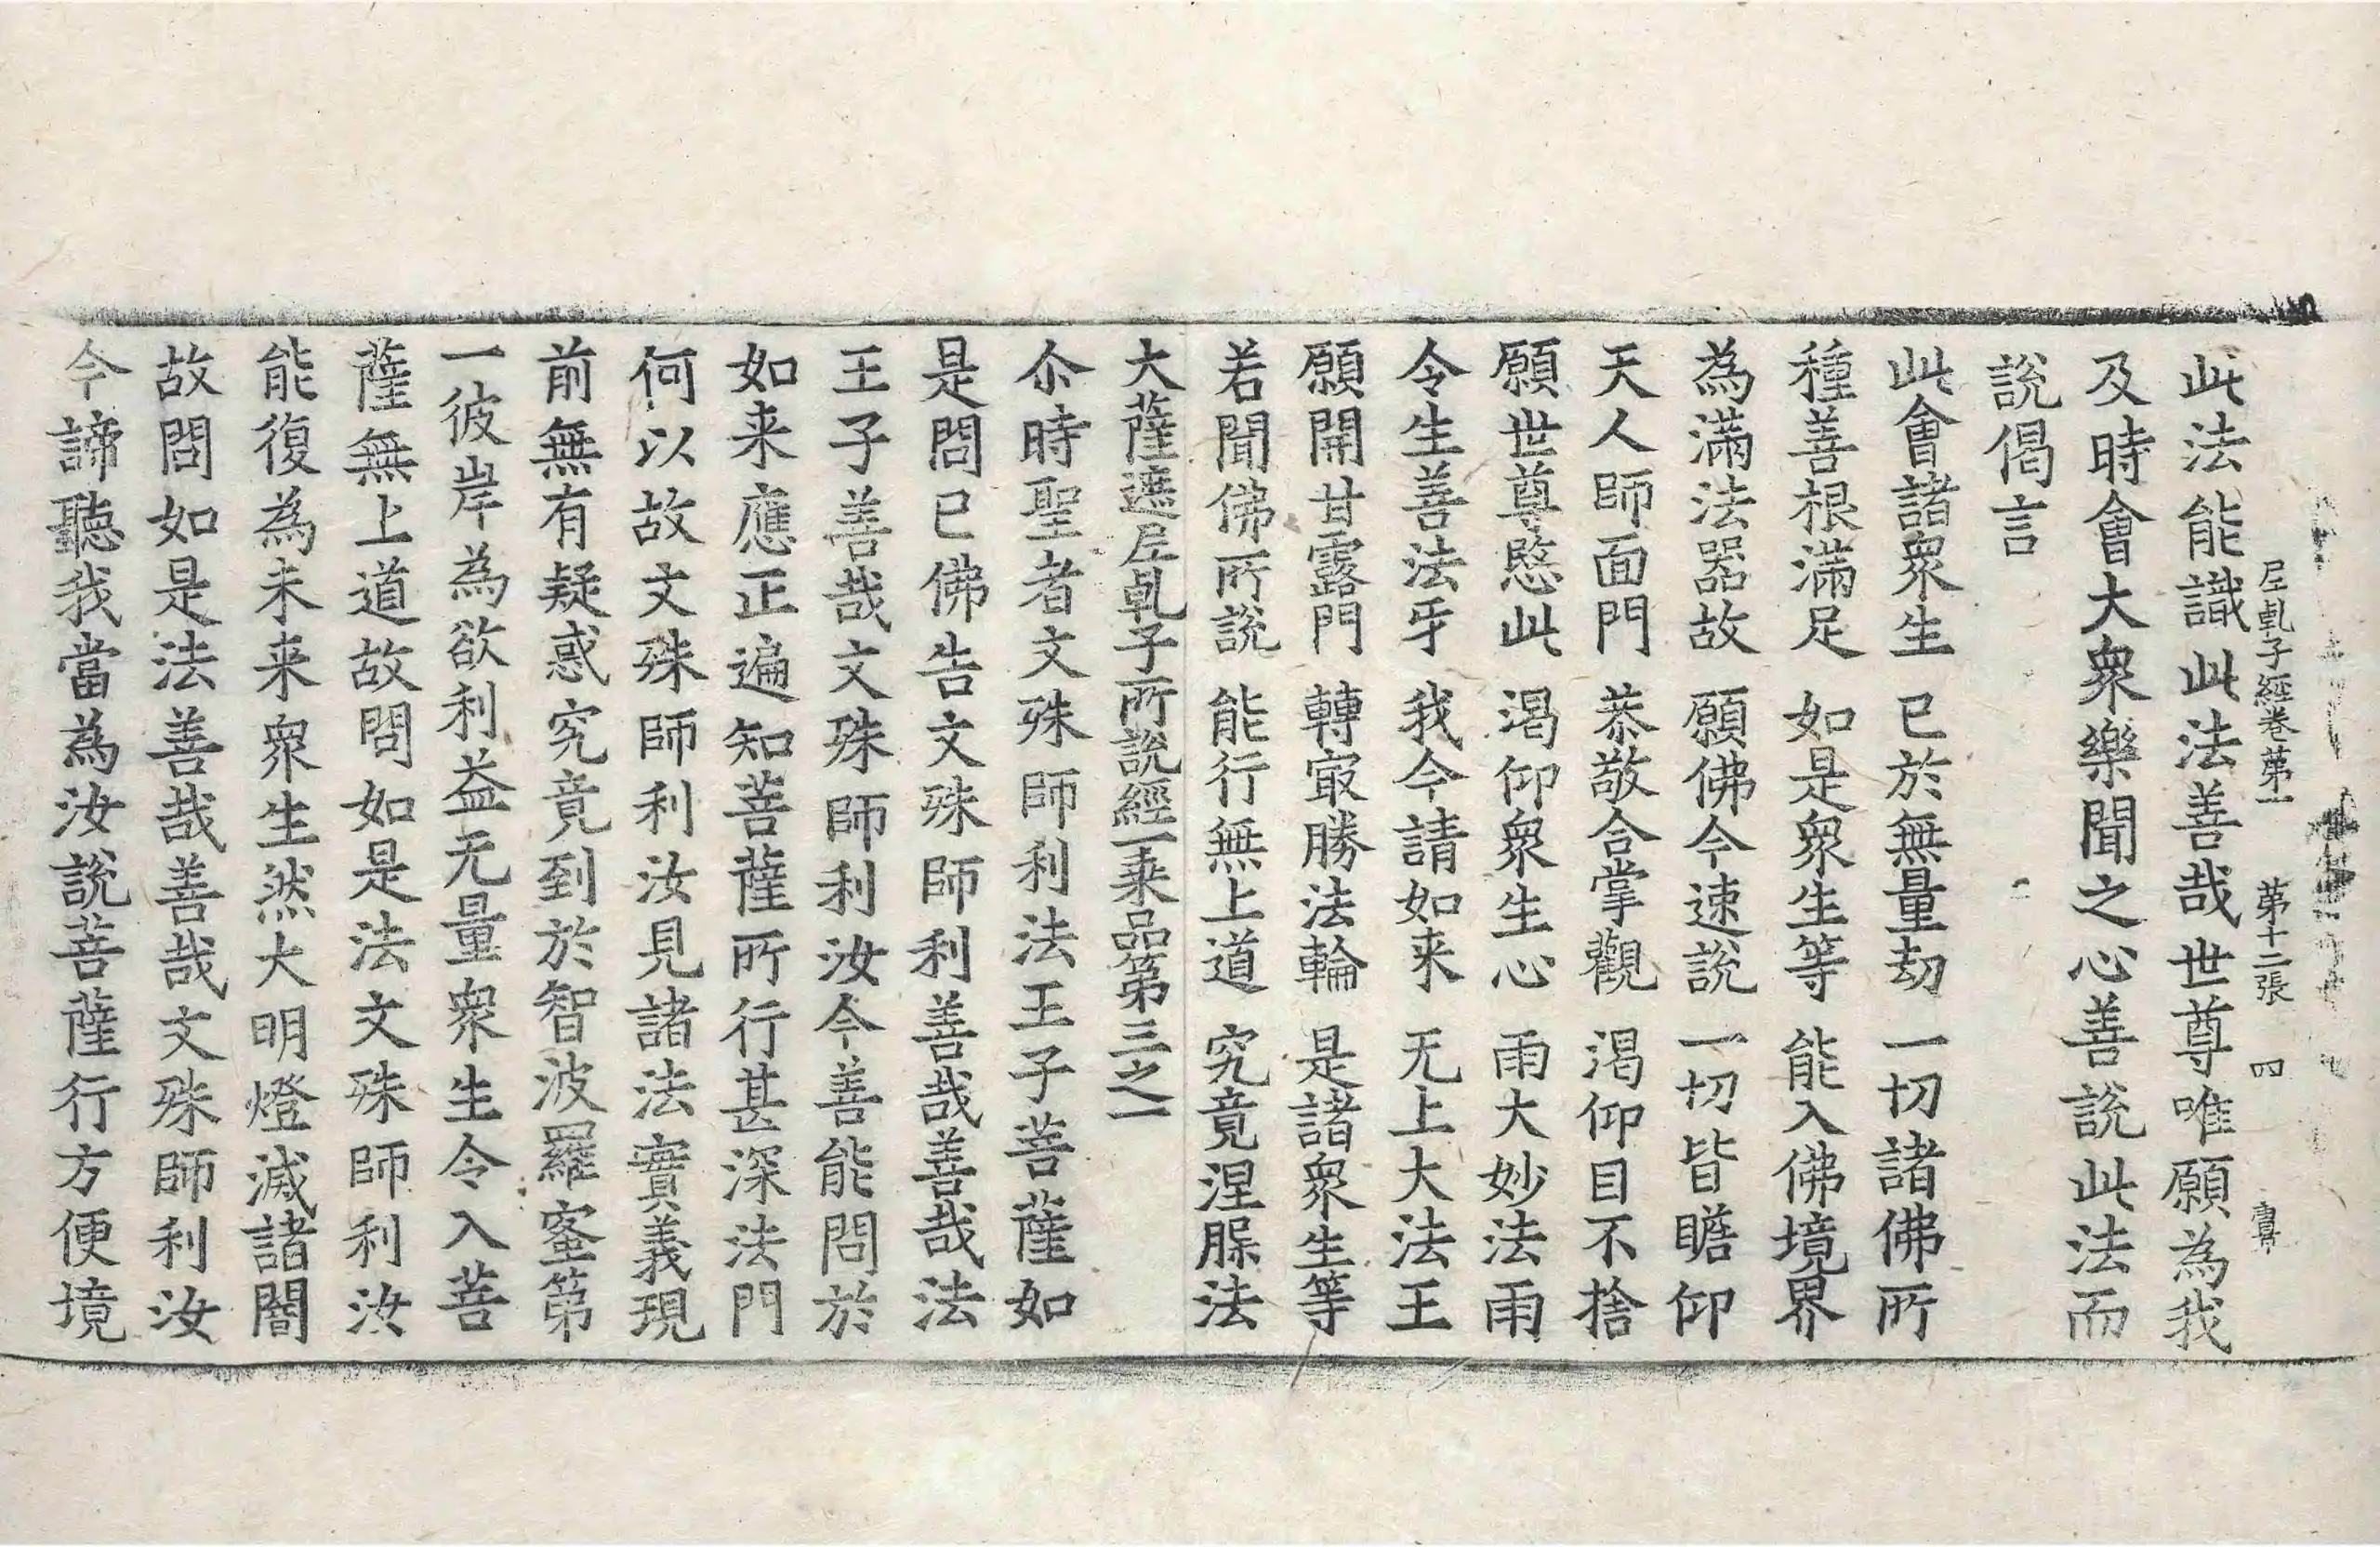 𡰱乹子經卷苐一 苐十二張 四
此法能識此法善哉世尊唯願為我
及時會大衆樂聞之心善說此法而
說偈言
此會諸衆生 已於無量劫 一切諸佛所
種善根滿足 如是衆生等 能入佛境界
為滿法器故 願佛今速說 一切皆瞻仰
天人師面門 恭敬合掌觀 渴仰目不捨
願世尊愍此 渴仰衆生心 雨大妙法雨
令生善法牙 我今請如来 无上大法王
願開甘露門 轉㝡勝法輪 是諸衆生等
若聞佛所說 能行無上道 究竟涅槃法
大薩遮𡰱乹子所說經一乗品第三之一
尒時聖者文殊師利法王子菩薩如
是問已佛告文殊師利善哉善哉法
王子善哉文殊師利汝今善能問於
如来應正遍知菩薩所行甚深法門
何以故文殊師利汝見諸法實義現
前無有疑惑究竟到於智波羅蜜第
一彼岸為欲利益无量衆生令入菩
薩無上道故問如是法文殊師利汝
能復為未来衆生然大明燈滅諸闇
故問如是法善哉善哉文殊師利汝
今諦聽我當為汝說菩薩行方便境